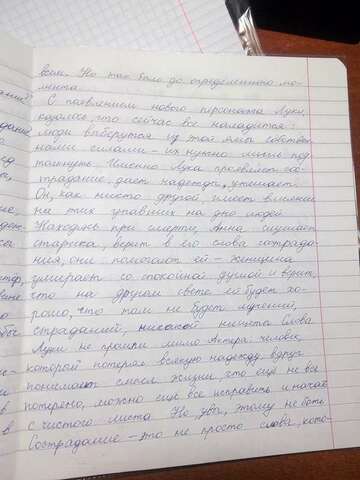 всем. Но так было до определенного мо-
мента.
С появлением нового персонажа Луки,
казалось, что сейчас все наладится:
люди выберутся из этой ямы собствен-
ными силами – их нужно лишь под
толкнуть. Именно Лука проявляет со-
страдание, дает надежду, утешает.
Он, как никто другой, имеет влияние
на тих упавших на дно людей
Находясь при смерти, Анна слушает
старика, верит в его слова сострада-
ния, они помогают ей – женщина
умирает со спокойной душой и верит,
что на другом свете ей будет хо-
рошо, что там не будет мучений,
страданий, никакой нищеты Слова
Луки не прошли мимо Актера. человек,
который потерял всякую надежду вдруг
понимает смысл жизни, что еще не все
потеряно, можно еще все исправить и начать
с чистого листа Но, увы, этому не быть
Сострадание – это не просто слова, кото-